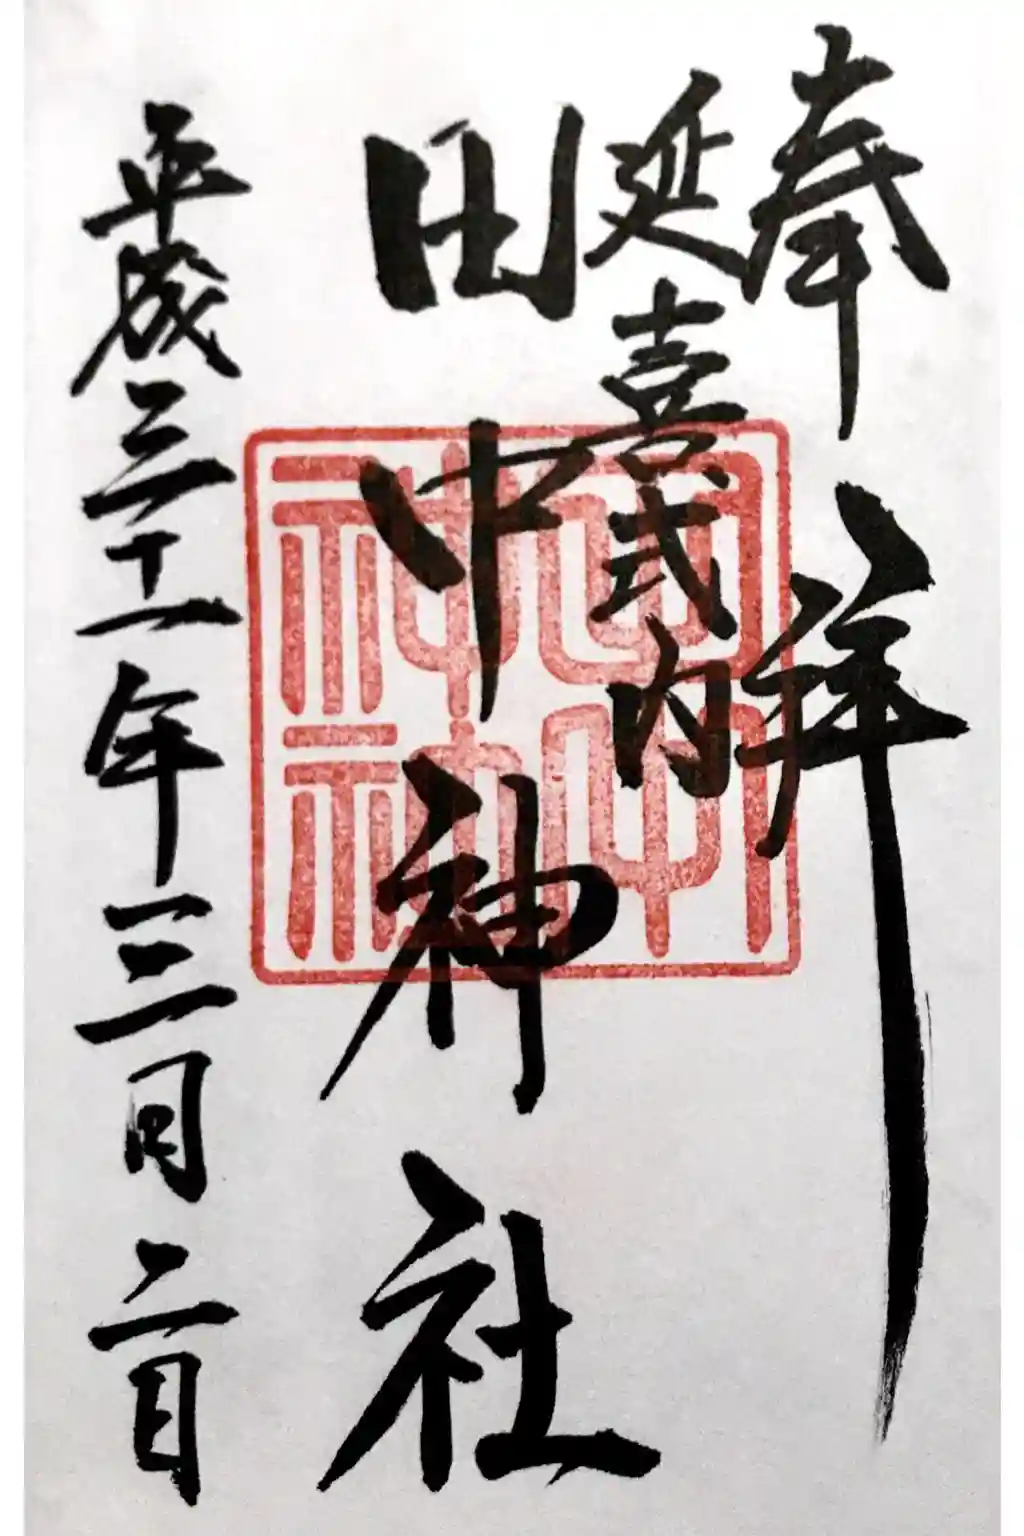 奉拝
延喜式内
田中神社
田中
神社
平成三十一年三月二日